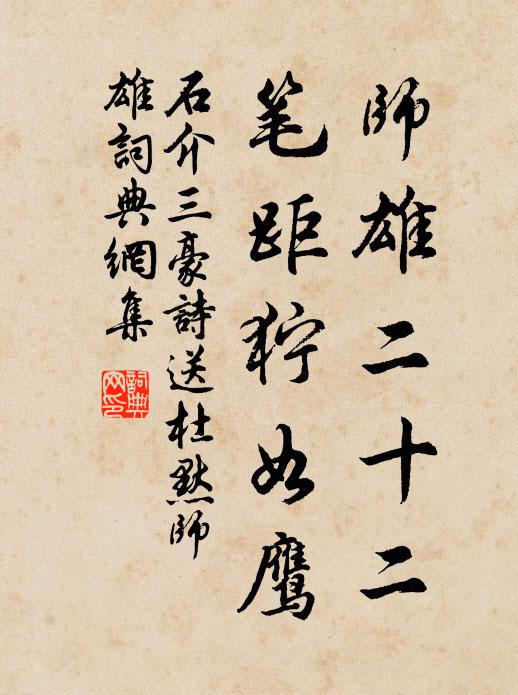 師雄二十二
笔距狞如鹰
石介三豪詩送杜默師
雄詞典網集
詞典网印